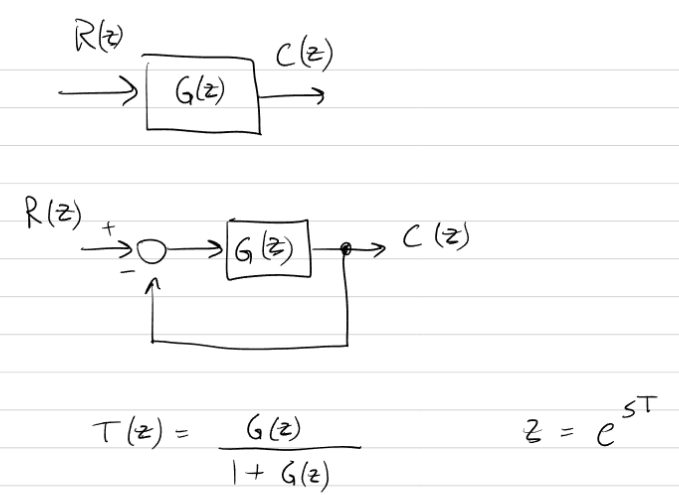 R(z) C(z)
G(z)
R(z) + G(z) C(z)
−
T(z) = G(z) / 1 + G(z) z = e^sT